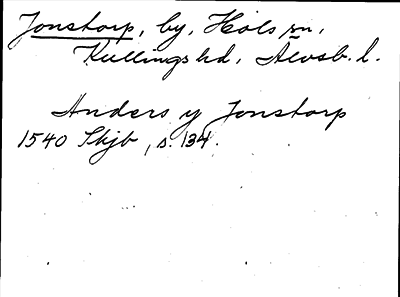 Jonstorp, by, Hols sn,
Kullings hd, Älvsb. l.
Anders y Jonstorp
1540 Skjb, s. 134.